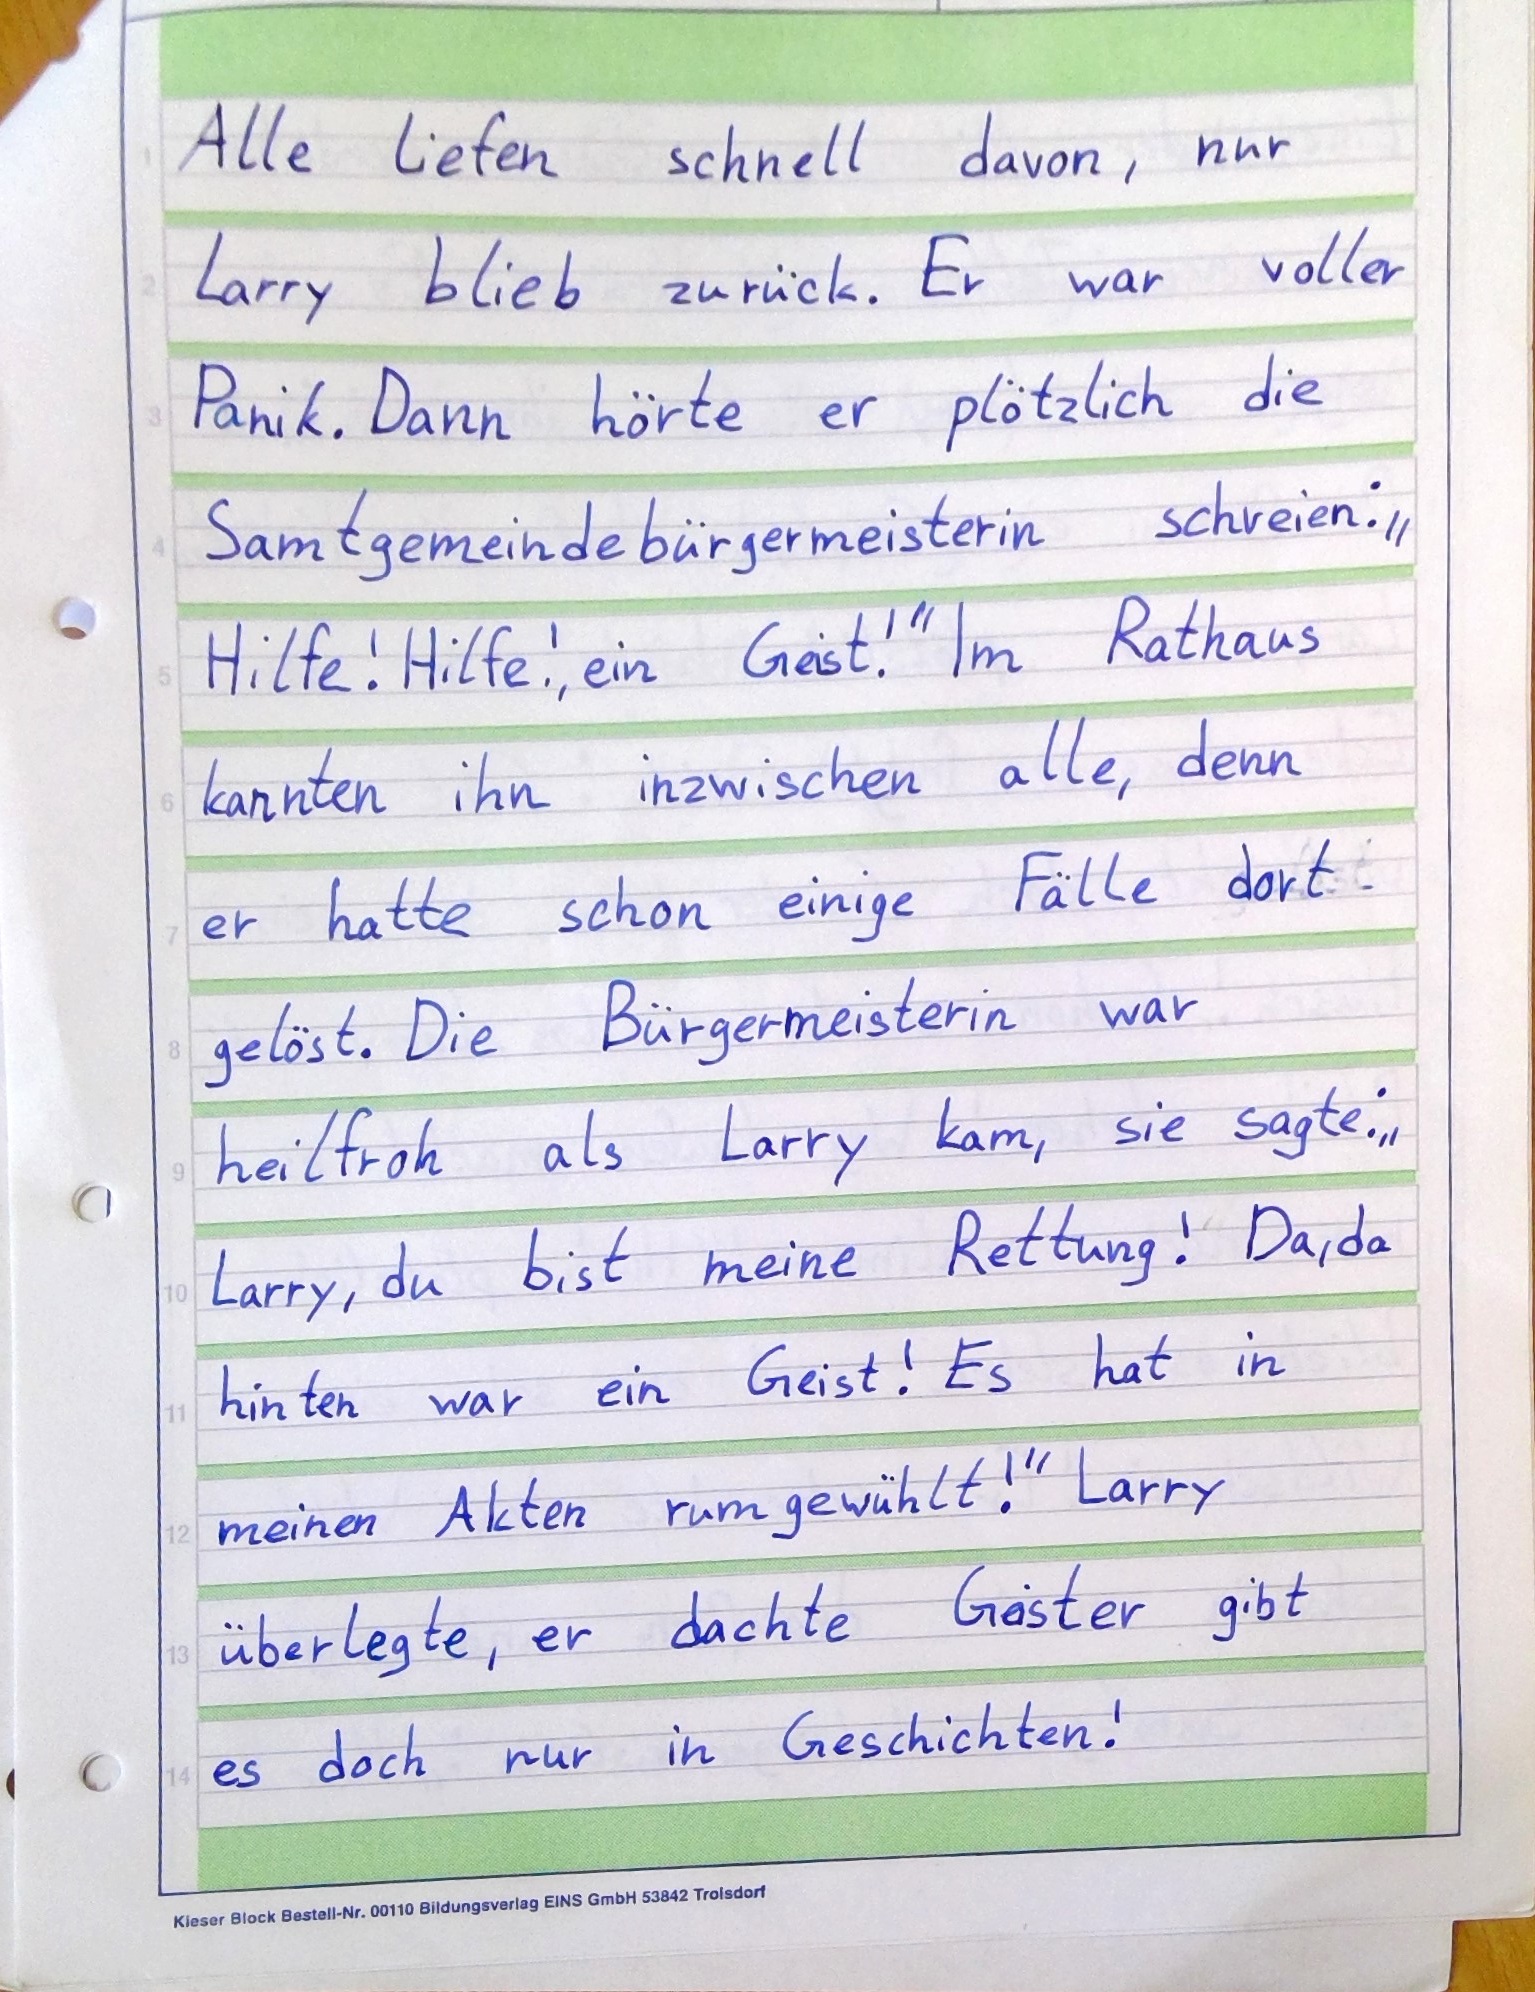 1 Alle liefen schnell davon, nur
2 Larry blieb zurück. Er war voller
3 Panik. Dann hörte er plötzlich die
4 Samtgemeindebürgermeisterin schreien:„
5 Hilfe! Hilfe!, ein Geist!" Im Rathaus
6 kannten ihn inzwischen alle, denn
7 er hatte schon einige Fälle dort
8 gelöst. Die Bürgermeisterin war
9 heilfroh als Larry kam, sie sagte:„
10 Larry, du bist meine Rettung! Da, da
11 hinten war ein Geist! Es hat in
12 meinen Akten rumgewühlt!" Larry
13 überlegte, er dachte Geister gibt
14 es doch nur in Geschichten!
Kieser Block Bestell-Nr. 00110 Bildungsverlag EINS GmbH 53842 Troisdorf